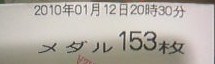 2010年01月12日20時30分
メダル153枚